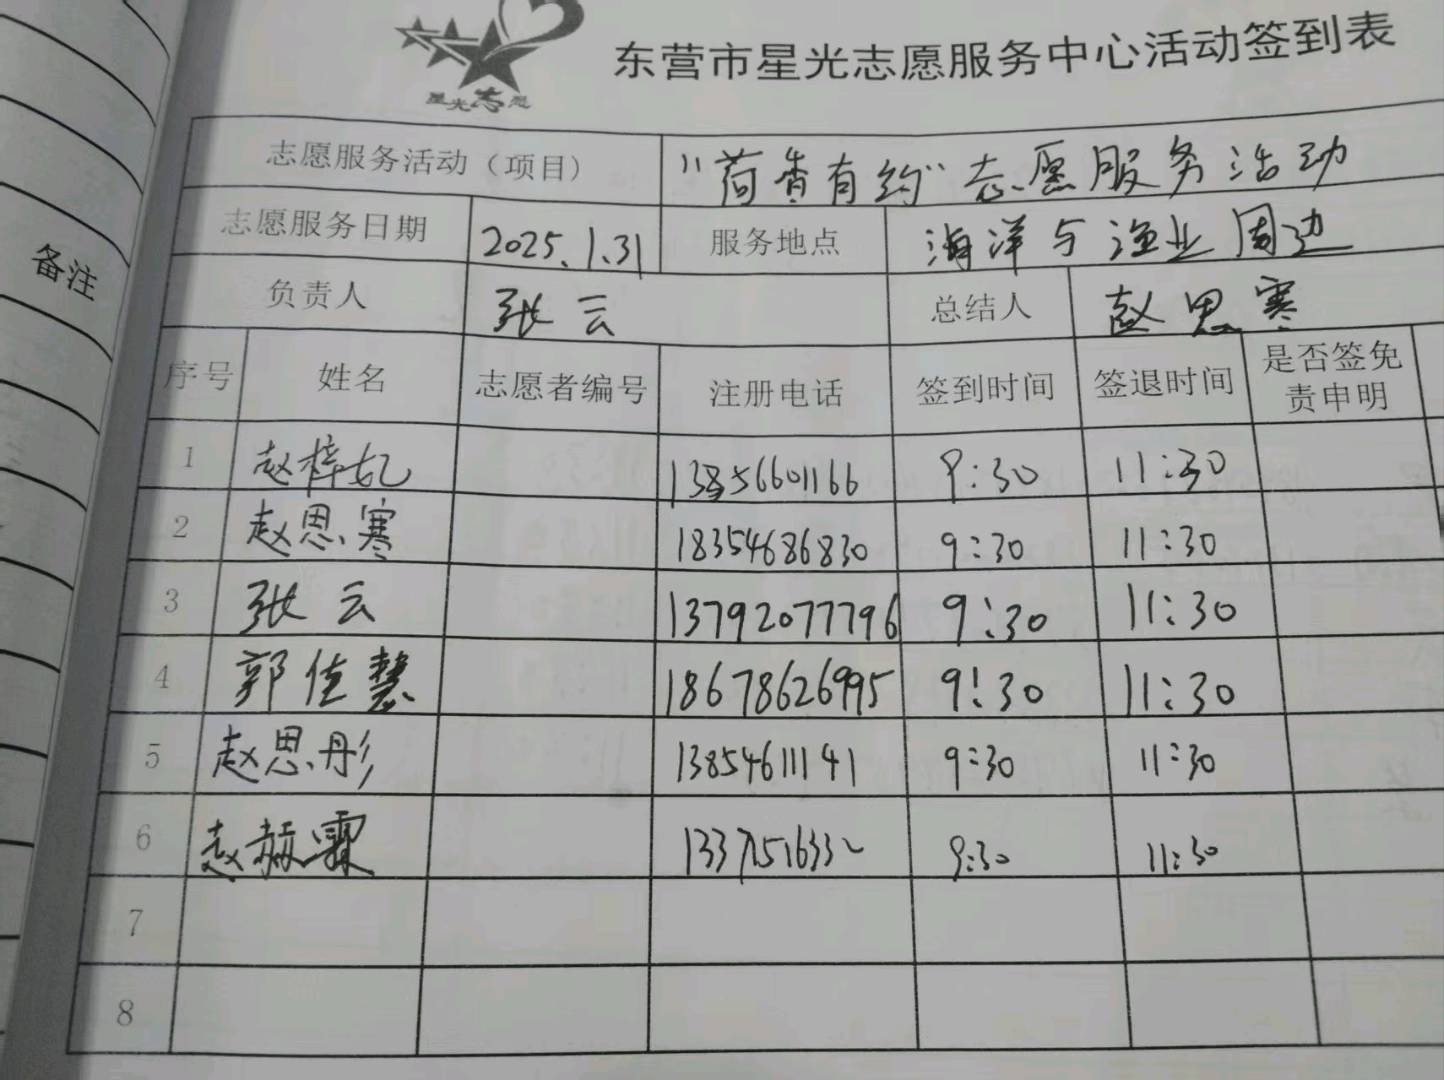 东营市星光志愿服务中心活动签到表
星光志愿
志愿服务活动（项目） “荷香有约”志愿服务活动
志愿服务日期 2025.1.31 服务地点 海洋与渔业周边
备注
负责人 张云 总结人 赵思寒
序号 姓名 志愿者编号 注册电话 签到时间 签退时间 是否签免责申明
1 赵梓妃 13856601166 9:30 11:30
2 赵思寒 18354686830 9:30 11:30
3 张云 13792077796 9:30 11:30
4 郭佳慧 18678626995 9:30 11:30
5 赵思彤 13854611141 9:30 11:30
6 赵赫霖 13371516332 9:30 11:30
7
8